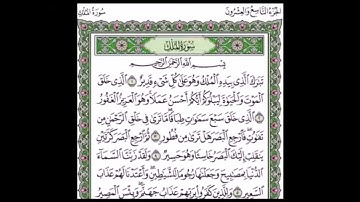 سُورَةُ المُلْكِ الجُزْءُ التَّاسِعُ وَالعِشْرُونَ
سُورَةُ المُلْكِ
بِسْمِ اللَّهِ الرَّحْمَٰنِ الرَّحِيمِ
تَبَٰرَكَ ٱلَّذِى بِيَدِهِ ٱلْمُلْكُ وَهُوَ عَلَىٰ كُلِّ شَىْءٍ قَدِيرٌ ١ ٱلَّذِى خَلَقَ
ٱلْمَوْتَ وَٱلْحَيَوٰةَ لِيَبْلُوَكُمْ أَيُّكُمْ أَحْسَنُ عَمَلًا وَهُوَ ٱلْعَزِيزُ ٱلْغَفُورُ
٢ ٱلَّذِى خَلَقَ سَبْعَ سَمَٰوَٰتٍ طِبَاقًا مَّا تَرَىٰ فِى خَلْقِ ٱلرَّحْمَٰنِ مِن
تَفَٰوُتٍ فَٱرْجِعِ ٱلْبَصَرَ هَلْ تَرَىٰ مِن فُطُورٍ ٣ ثُمَّ ٱرْجِعِ ٱلْبَصَرَ كَرَّتَيْنِ
يَنقَلِبْ إِلَيْكَ ٱلْبَصَرُ خَاسِئًا وَهُوَ حَسِيرٌ ٤ وَلَقَدْ زَيَّنَّا ٱلسَّمَآءَ
ٱلدُّنْيَا بِمَصَٰبِيحَ وَجَعَلْنَٰهَا رُجُومًا لِّلشَّيَٰطِينِ وَأَعْتَدْنَا لَهُمْ عَذَابَ
ٱلسَّعِيرِ ٥ وَلِلَّذِينَ كَفَرُوا۟ بِرَبِّهِمْ عَذَابُ جَهَنَّمَ وَبِئْسَ ٱلْمَصِيرُ